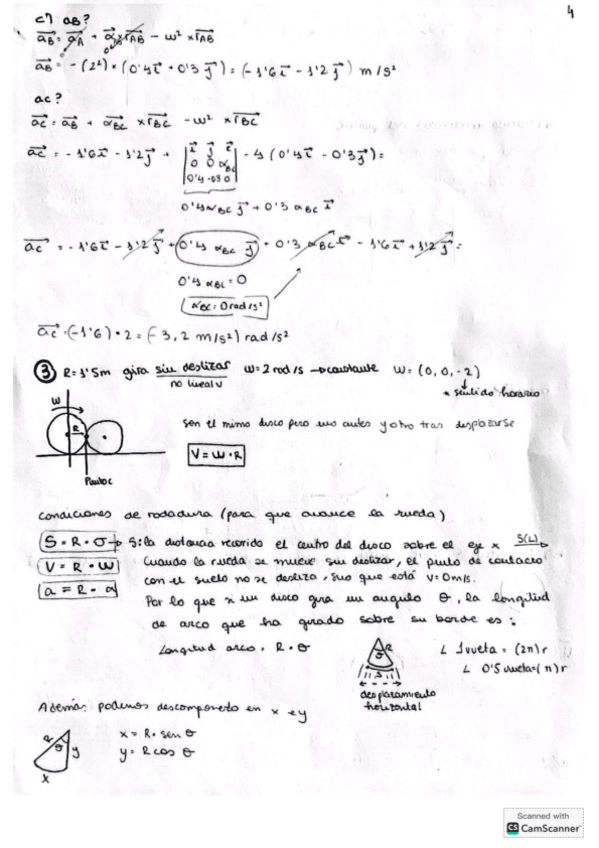 4
c) aB?
aB = aA + α x rAB - w² x rAB
aB = -(2²) x (0'4i + 0'3j) = (-1'6i - 1'2j) m/s²
ac?
ac = aB + αBC x rBC - w² x rBC
ac = -1'6i - 1'2j + | i j k 0 0 αBC 0'4 -03 0 | - 4 (0'4i - 0'3j) =
0'4 αBC j + 0'3 αBC i
ac = -1'6i - 1'2j + 0'4 αBC j + 0'3 αBC i - 1'6i + 1'2j =
0'4 αBC = 0
αBC = 0 rad/s²
ac = (-1'6) · 2 = (-3,2 m/s²) rad/s²
3 R = 1'5m gira sin deslizar w = 2 rad/s → constante w = (0, 0, -2)
no lineal v
* sentido horario
w
R
Punto C
sen el mimo disco pero uno antes y otro tras desplazarse
V = w · R
condiciones de rodadura (para que avance la rueda)
S = R · θ → S: la distancia recorrido el centro del disco sobre el eje x S(L)
V = R · w Cuando la rueda se mueve sin deslizar, el punto de contacto
a = R · α con el suelo no se desliza, sino que está v = 0m/s.
Por lo que si un disco gira un angulo θ, la longitud
de arco que ha girado sobre su borde es:
Longitud arco = R · θ
R
θ
S
desplazamiento
horizontal
L 1 vueta = (2π) r
L 0'5 vueta = (π) r
Además podemos descomponerlo en x e y
R θ y
x
x = R · sen θ
y = R cos θ
Scanned with
CS CamScanner